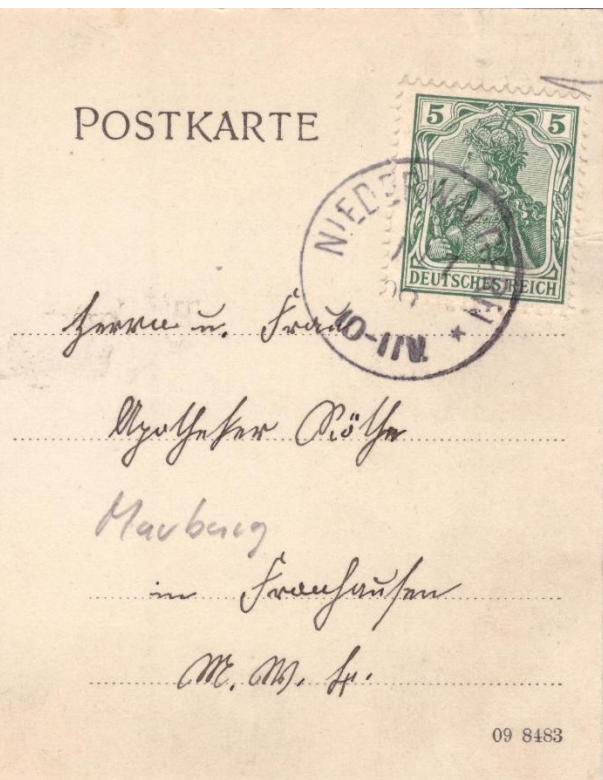 POSTKARTE
5 5
DEUTSCHES REICH
NIEDERWALGERN *
10-11V.
Herrn u. Frau
Apotheker
Marburg
in Fronhausen
M. W.
09 8483